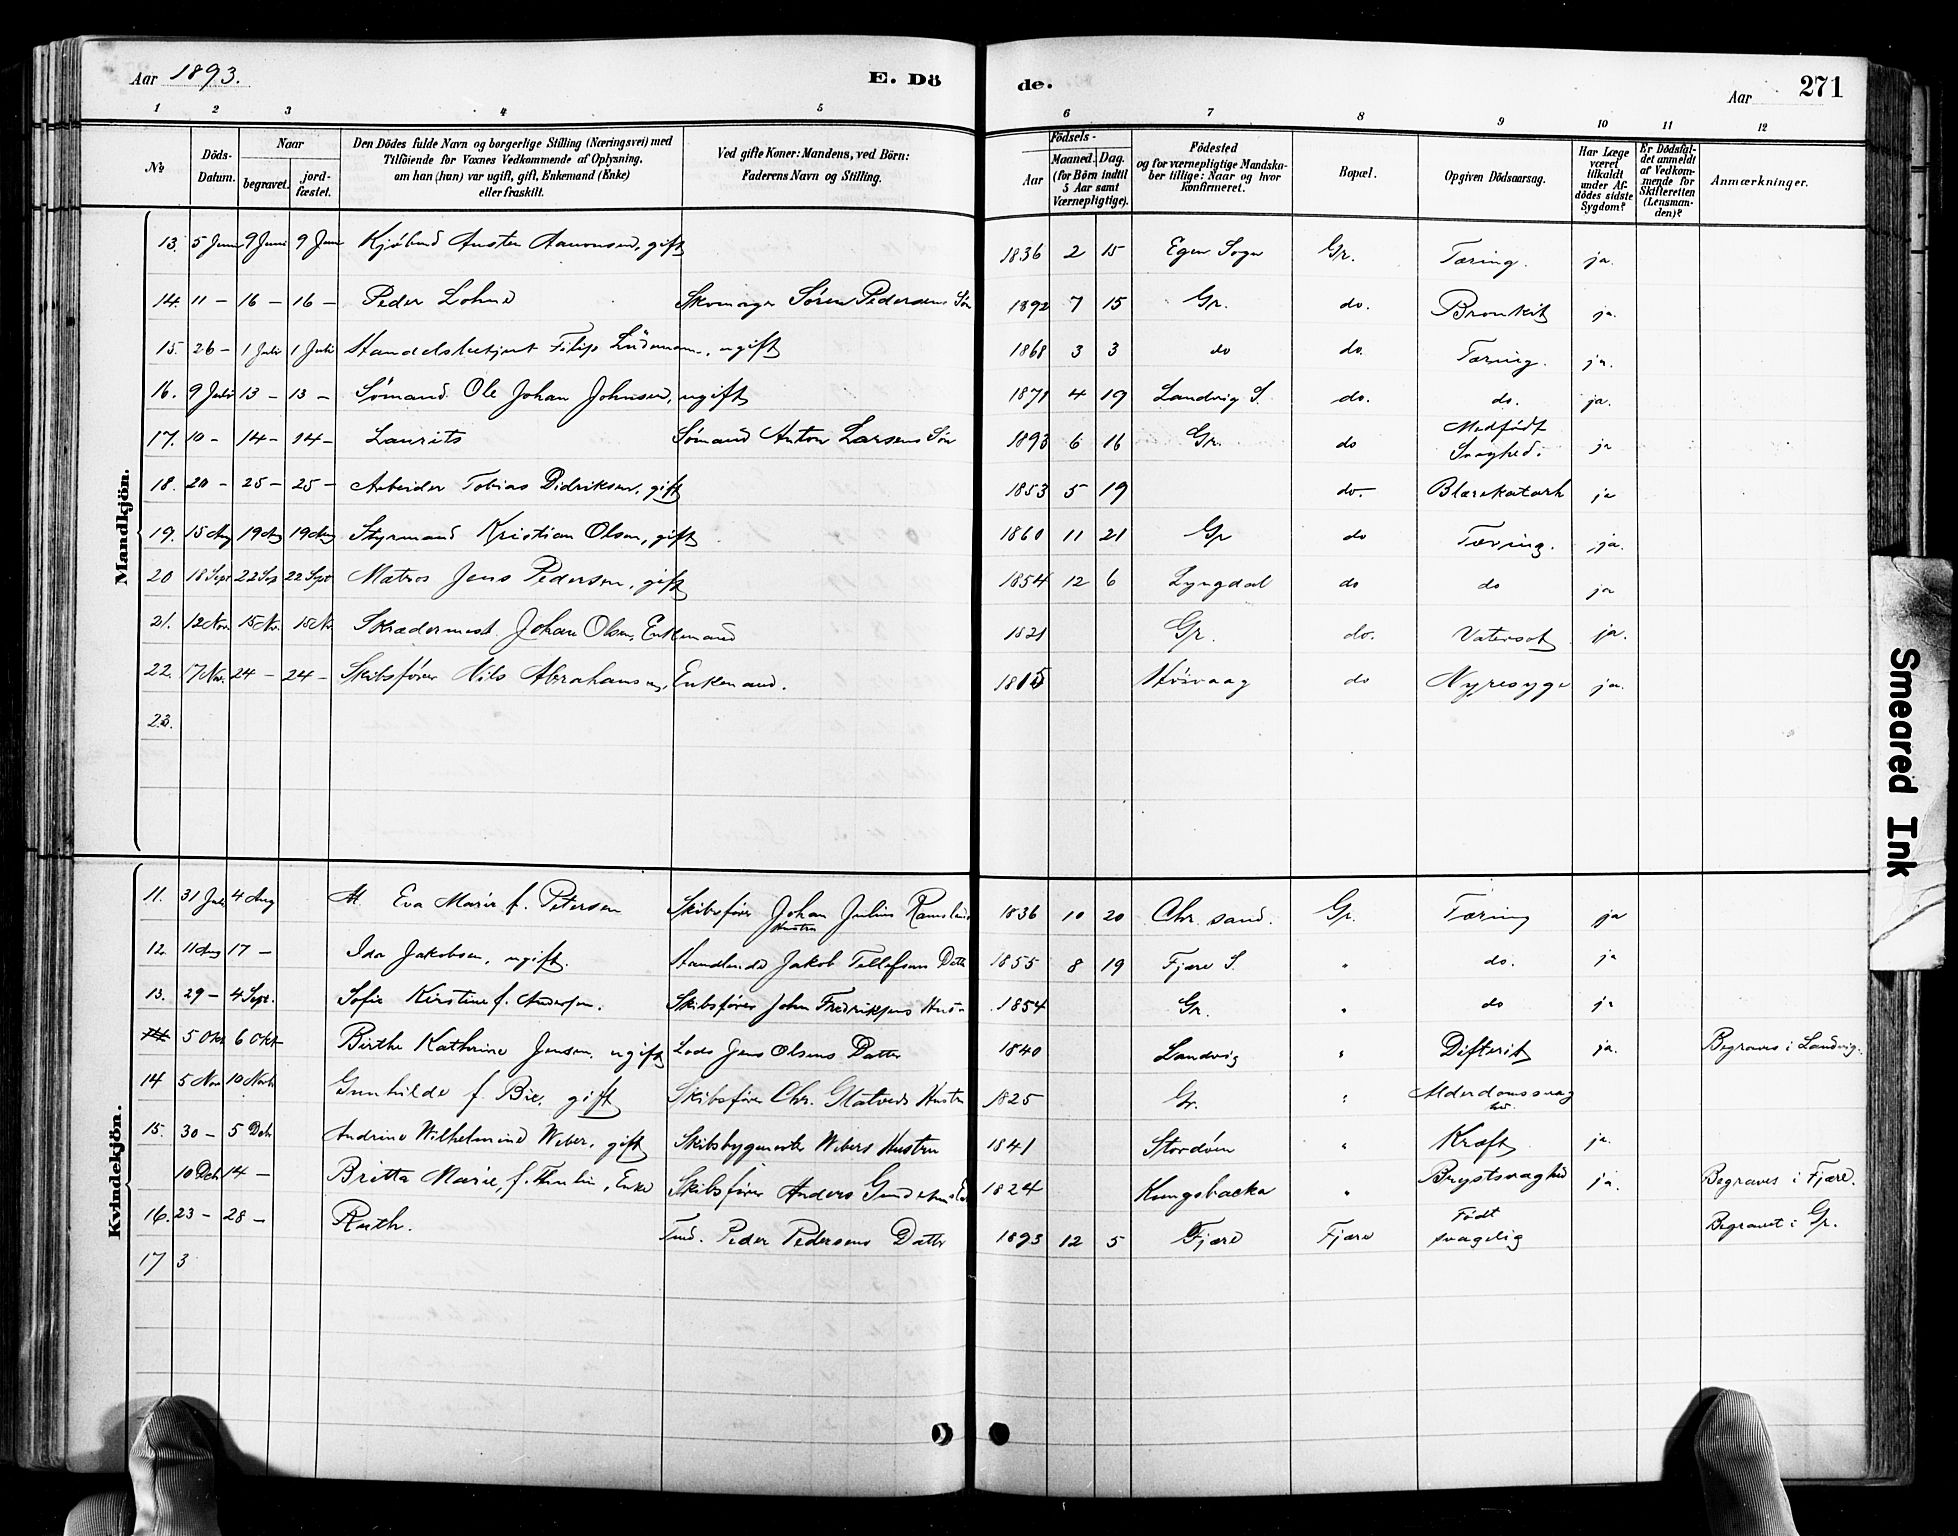 Aar 1893. E. Dö de. Aar 271
1 2 3 4 5 6 7 8 9 10 11 12
No. Döds-Datum. Naar begravet. jord-fæstet. Den Dödes fulde Navn og borgerlige Stilling (Næringsvei) med Tilföiende for Voxnes Vedkommende af Oplysning, om han (hun) var ugift, gift, Enkemand (Enke) eller fraskilt. Ved gifte Koner: Mandens, ved Börn: Faderens Navn og Stilling. Födsels- Aar Maaned. Dag. (for Börn indtil 5 Aar samt Værnepligtige). Födested og for værnepligtige Mandska-ber tillige: Naar og hvor konfirmeret. Bopæl. Opgiven Dödsaarsag. Har Læge været tilkaldt under Af-dödes sidste Sygdom? Er Dödsfal-det anmeldt af Vedkom-mende for Skifteretten (Lensman-den)? Anmærkninger.
Mandkjön.
13. 5 Juni 9 Juni 9 Juni Austen Aanonsen, gift 1836 2 15 Egen Sogn Gr. Tæring. ja.
14. 11 - 16 - 16 - Peder Lohne Skomager Søren Pedersens Søn 1892 7 15 Gr. do. Bronkit ja.
15. 26 - 1 Juli 1 Juli Handelsbetjent Filip Lüdemann, ugift 1868 3 3 do do. Tæring. ja.
16. 9 Juli 13 - 13 - Sømand Ole Johan Johnsen, ugift 1871 4 19 Landvig S. do. do. ja.
17. 10 - 14 - 14 - Laurits Sømand Anton Larsens Søn 1893 6 16 Gr. do Medfødt Svaghed. ja
18. 20 - 25 - 25 - Arbeider Tobias Didriksen, gift 1853 5 19 do. Blærekatarh ja
19. 15 Aug 19 Aug 19 Aug Styrmand Kristian Olsen, gift 1860 11 21 Gr do Tæring. ja.
20 18 Sept 22 Sep 22 Sept Matros Jens Pedersen, gift 1854 12 6 Lyngdal do do ja
21. 12 Nov. 15 Nv. 15 Nv. Skrædermest. Johan Olsen, Enkemand 1821 Gr. do. Vatersot ja.
22. 17 Nv. 24 - 24 - Skibsfører Nils Abrahamsen, Enkemand. 1815 Høivaag do Nyresyge ja.
23.
Kvindekjön.
11. 31 Juli 4 Aug Eva Marie f. Petersen Skibsfører Johan Julius Hustru 1836 10 20 Chr. sand. Gr. Tæring ja
12. 11 Aug 17 - Ida Jakobsen, ugift. Handlende Jakob Tellefsens Datter 1855 8 19 Fjære S. " do. ja
13. 29 - 4 Sept. Sofie Kirstine f. Andersen. Skibsfører John Fredriksens Hust- 1854 Gr. " do ja
14 5 Okt 6 Okt Birthe Kathrine Jensen, ugift Lods Jens Olsens Datter 1840 Landvig " Difterit ja. Begraves i Landvig.
14 5 Nov 10 Novb Gunhilde f. Bie, gift Skibsfører Chr. Hustru 1825 Gr. " Alderdomssvaghed.
15. 30 - 5 Deb Andrine Wilhelmine Weber, gift Skibsbygmester Webers Hustru 1841 " Kræft ja.
10 Deb 14 - Britta Marie, f. Thulin, Enke Skibsfører Anders 1824 Kungsbacka " Brystsvaghed ja. Begraves i Fjære.
16. 23 - 28 - Ruth. Peder Pedersens Datter 1893 12 5 Fjære Fjære Født svagelig Begravet i Gr.
17 3
Smeared Ink